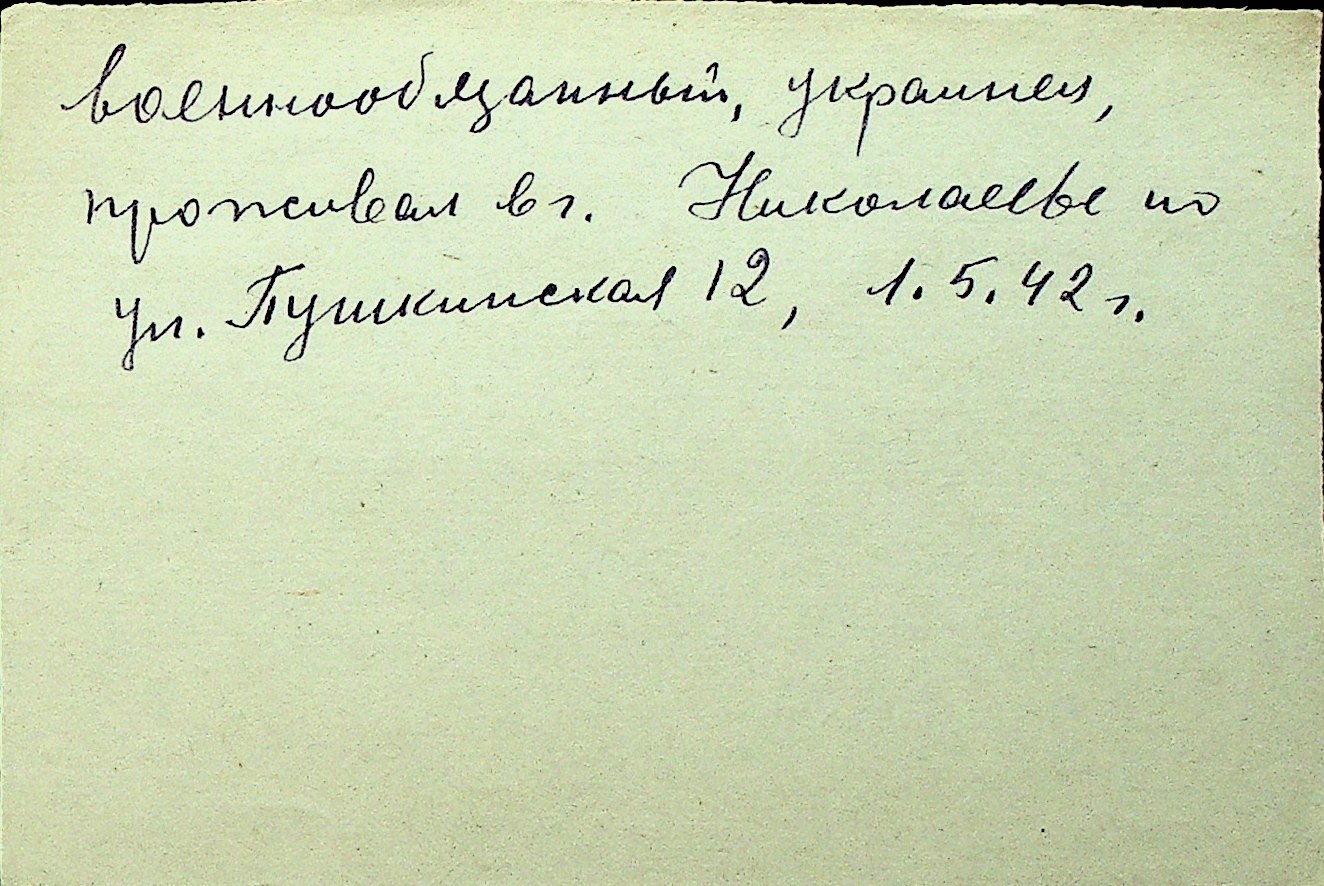 военнообязанный, украинец,
проживал в г. Николаеве по
ул. Пушкинская 12, 1.5.42 г.